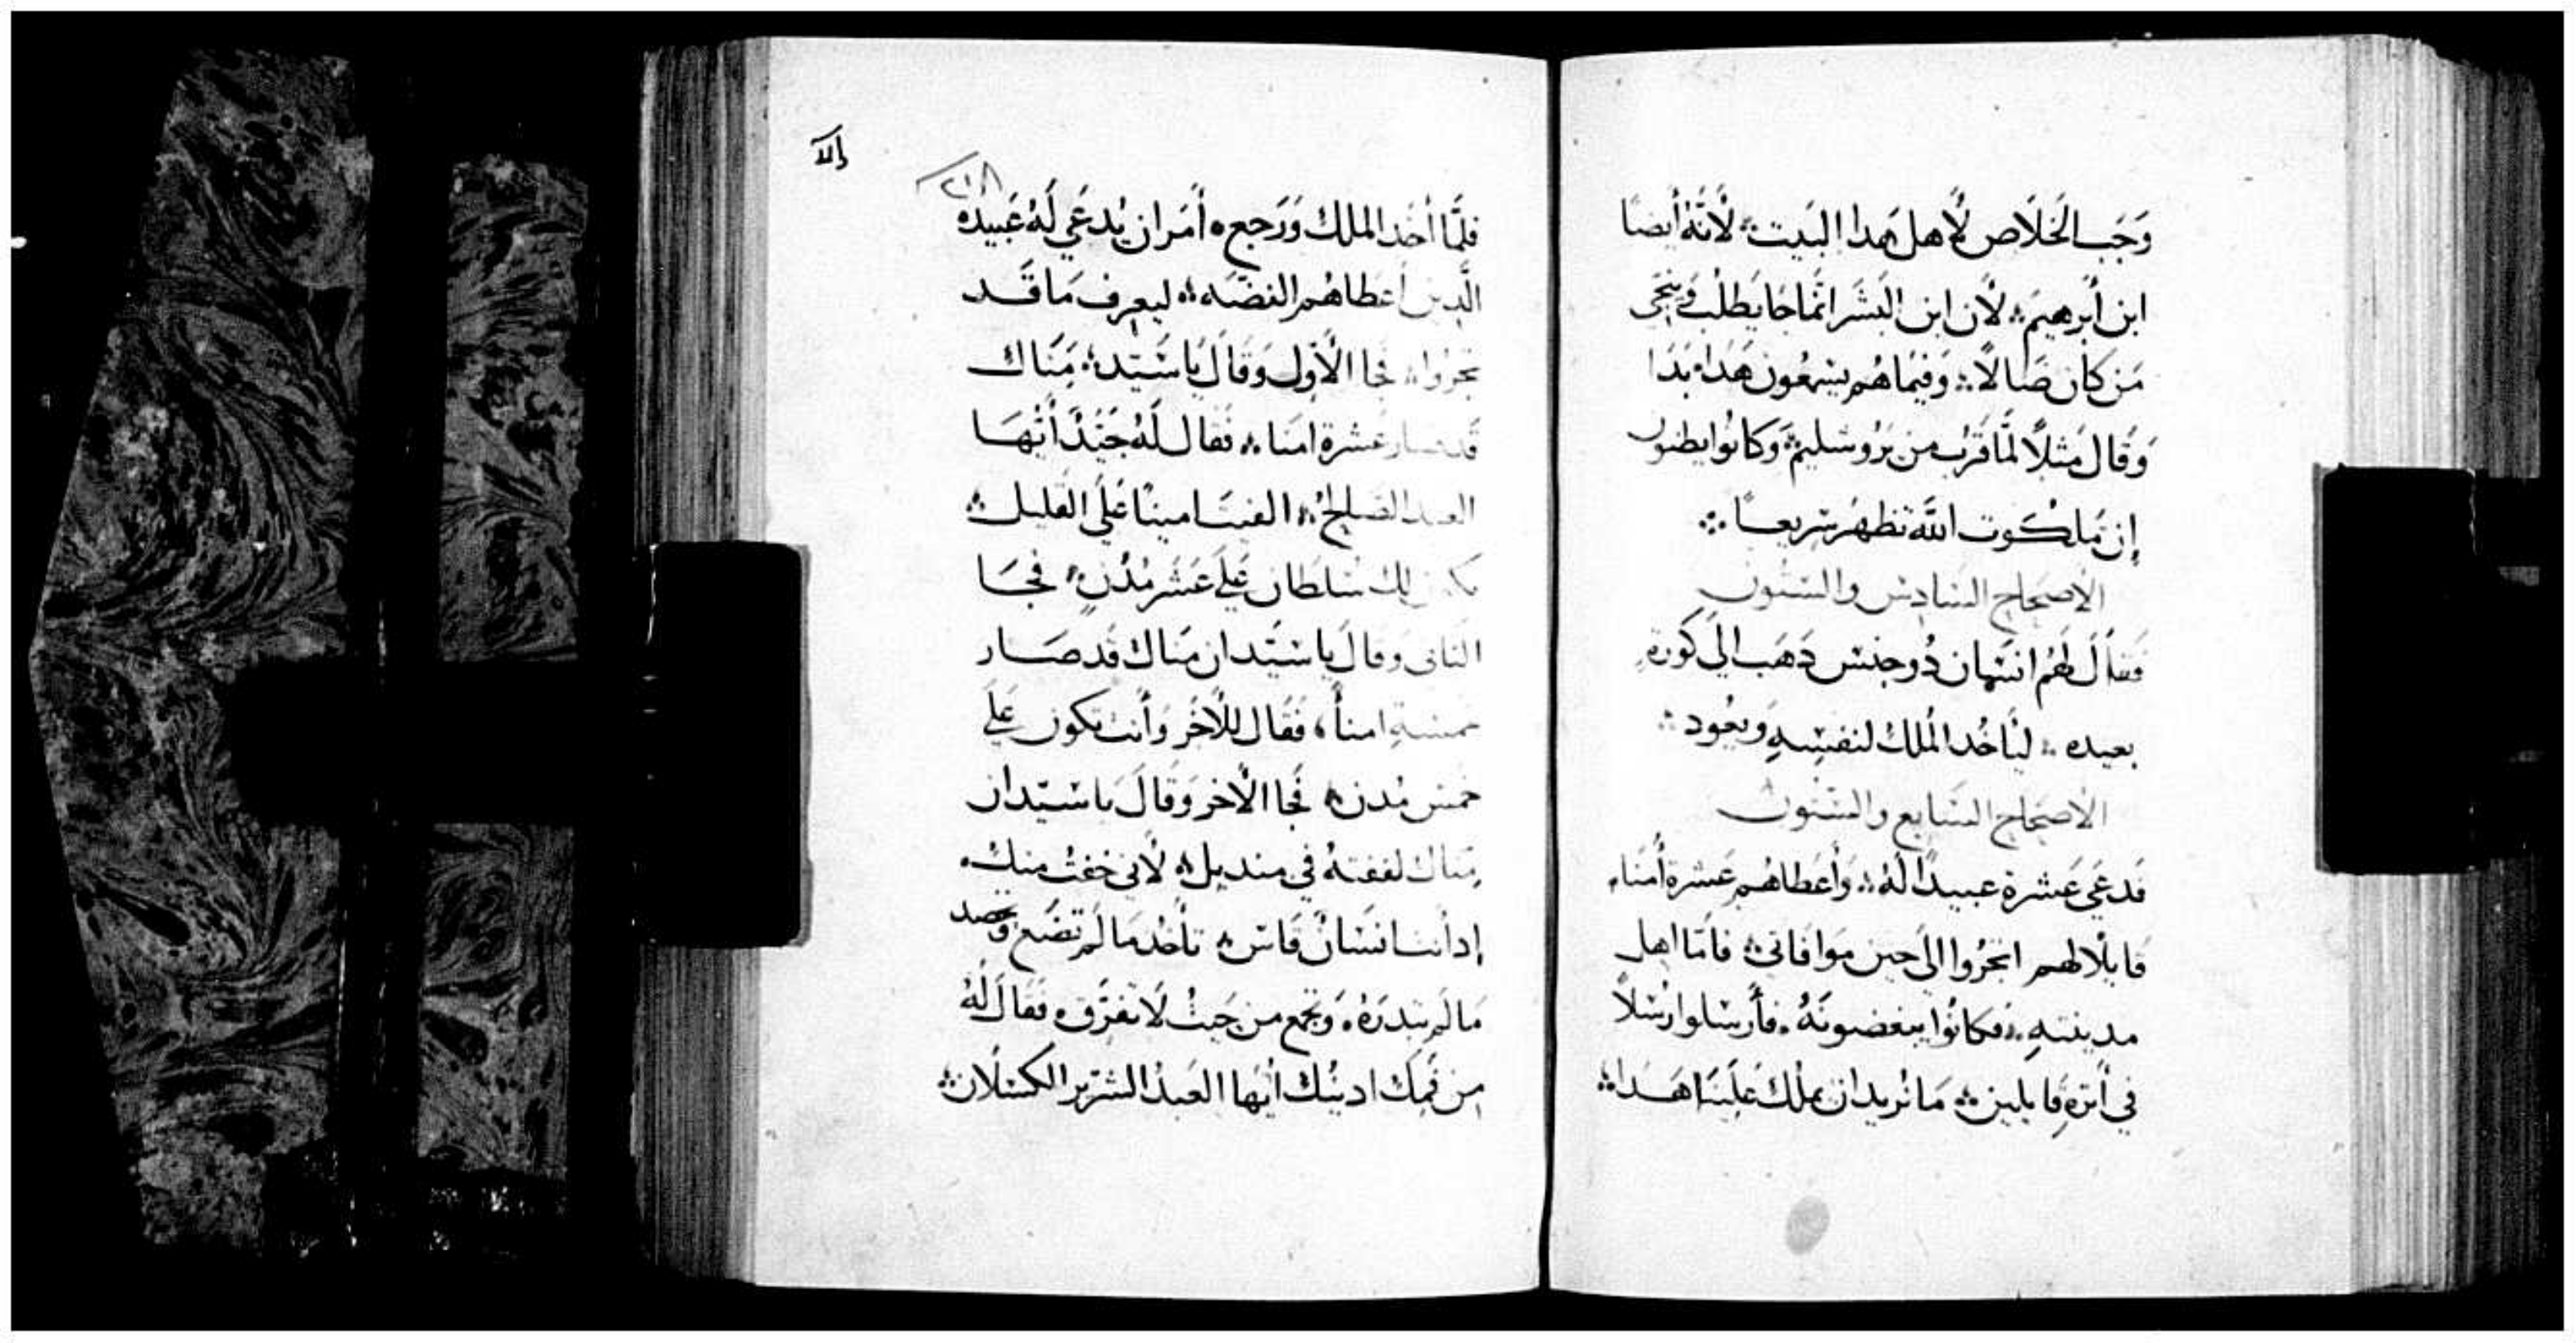 وَجَب الخَلَاص لأهل هَدا البَيت ܀ لأنَّهُ أيضًا
ابن أبرهيمَ ܀ لأن ابن البَشَر انَّما جَا يَطلُب وَينجّى
مَن كان ضَالاً ܀ وَفيمَا هُم يسمَعُون هَدا ܀ بَدَا
وَقَال مَثلاً لمَّا قَرُب من يَرُوسَليم ܀ وَكانُوا يظنون
إن مَلكُوت الله تظهَر سَريعًا ܀
الأصحاح السَادس والستون
فقالَ لهُم انسَان دُو جنس دَهَب الَي كُورَةٍ
بعيده ܀ ليَأخُد المُلك لنفسِهِ وَيعُود ܀
الأصحاح السَابع والستون
فدعَي عَشرة عبيدًا لَهُ ܀ وَأعَطاهُم عَشرة أمنَاء
قايلاً لهم اتجرُوا الَي حين موَافاتي ܀ فامَّا اهل
مدينتهِ ܀ فكانُوا يبغضونَهُ ܀ فأرسَلوا رُسُلاً
في أترهِ قايلين ܀ مَا نُريد ان يملك عَليَنا هَدا ܀
٢١٨
فلمَّا أخَد الملك وَرَجع ܀ أمَر ان يُدعَي لَهُ عَبيدهُ
الَّدين أعَطاهُم الفضَّه ܀ ليعرف مَا قَد
تجرُوا ܀ فجا الأوّل وَقَالَ يَا سَيّد ܀ مَنَاك
قد صار عَشرة امنا ܀ فَقال لَهُ جَيّدًا أيُّهَا
العبد الصَالح ܀ الفيتَ امينًا عَلَي القليل ܀
يكون لك سُلطان عَلَي عَشَر مُدُنٍ ܀ فَجَا
التاني وقالَ يا سَيّد ان مَناك قَد صَار
خمسَةِ امنأ ، فَقَال للأخر وَأنت تكون عَلَي
خمس مُدن ܀ فجَا الأخر وَقَالَ يا سَيّد ان
مَناك لففتهُ في منديل ܀ لأني خفتُ منك
إد أنت انسَانٌ قاس ܀ تأخُد مَا لَم تضَع وَتحصد
مَا لَم تبدرَهُ ܀ وَتجمَع من حَيثُ لَا تفَرّق ܀ فقَال لَهُ
من فَمِك ادينُك ايُّها العَبدُ الشرّير الكسلان ܀